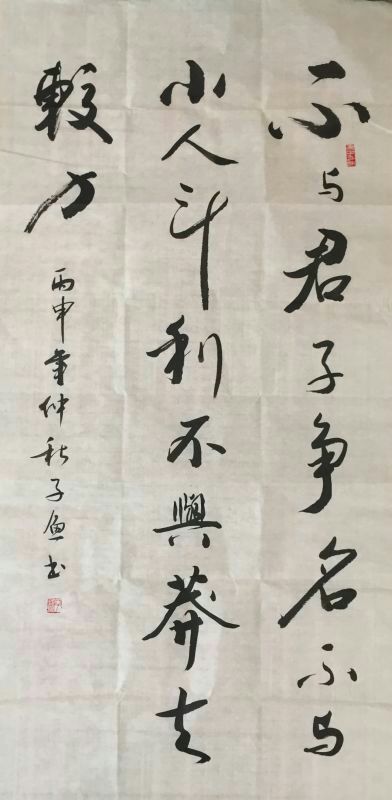 不与君子争名不与
小人斗利不與莽夫
較力
丙申年仲秋子魚书